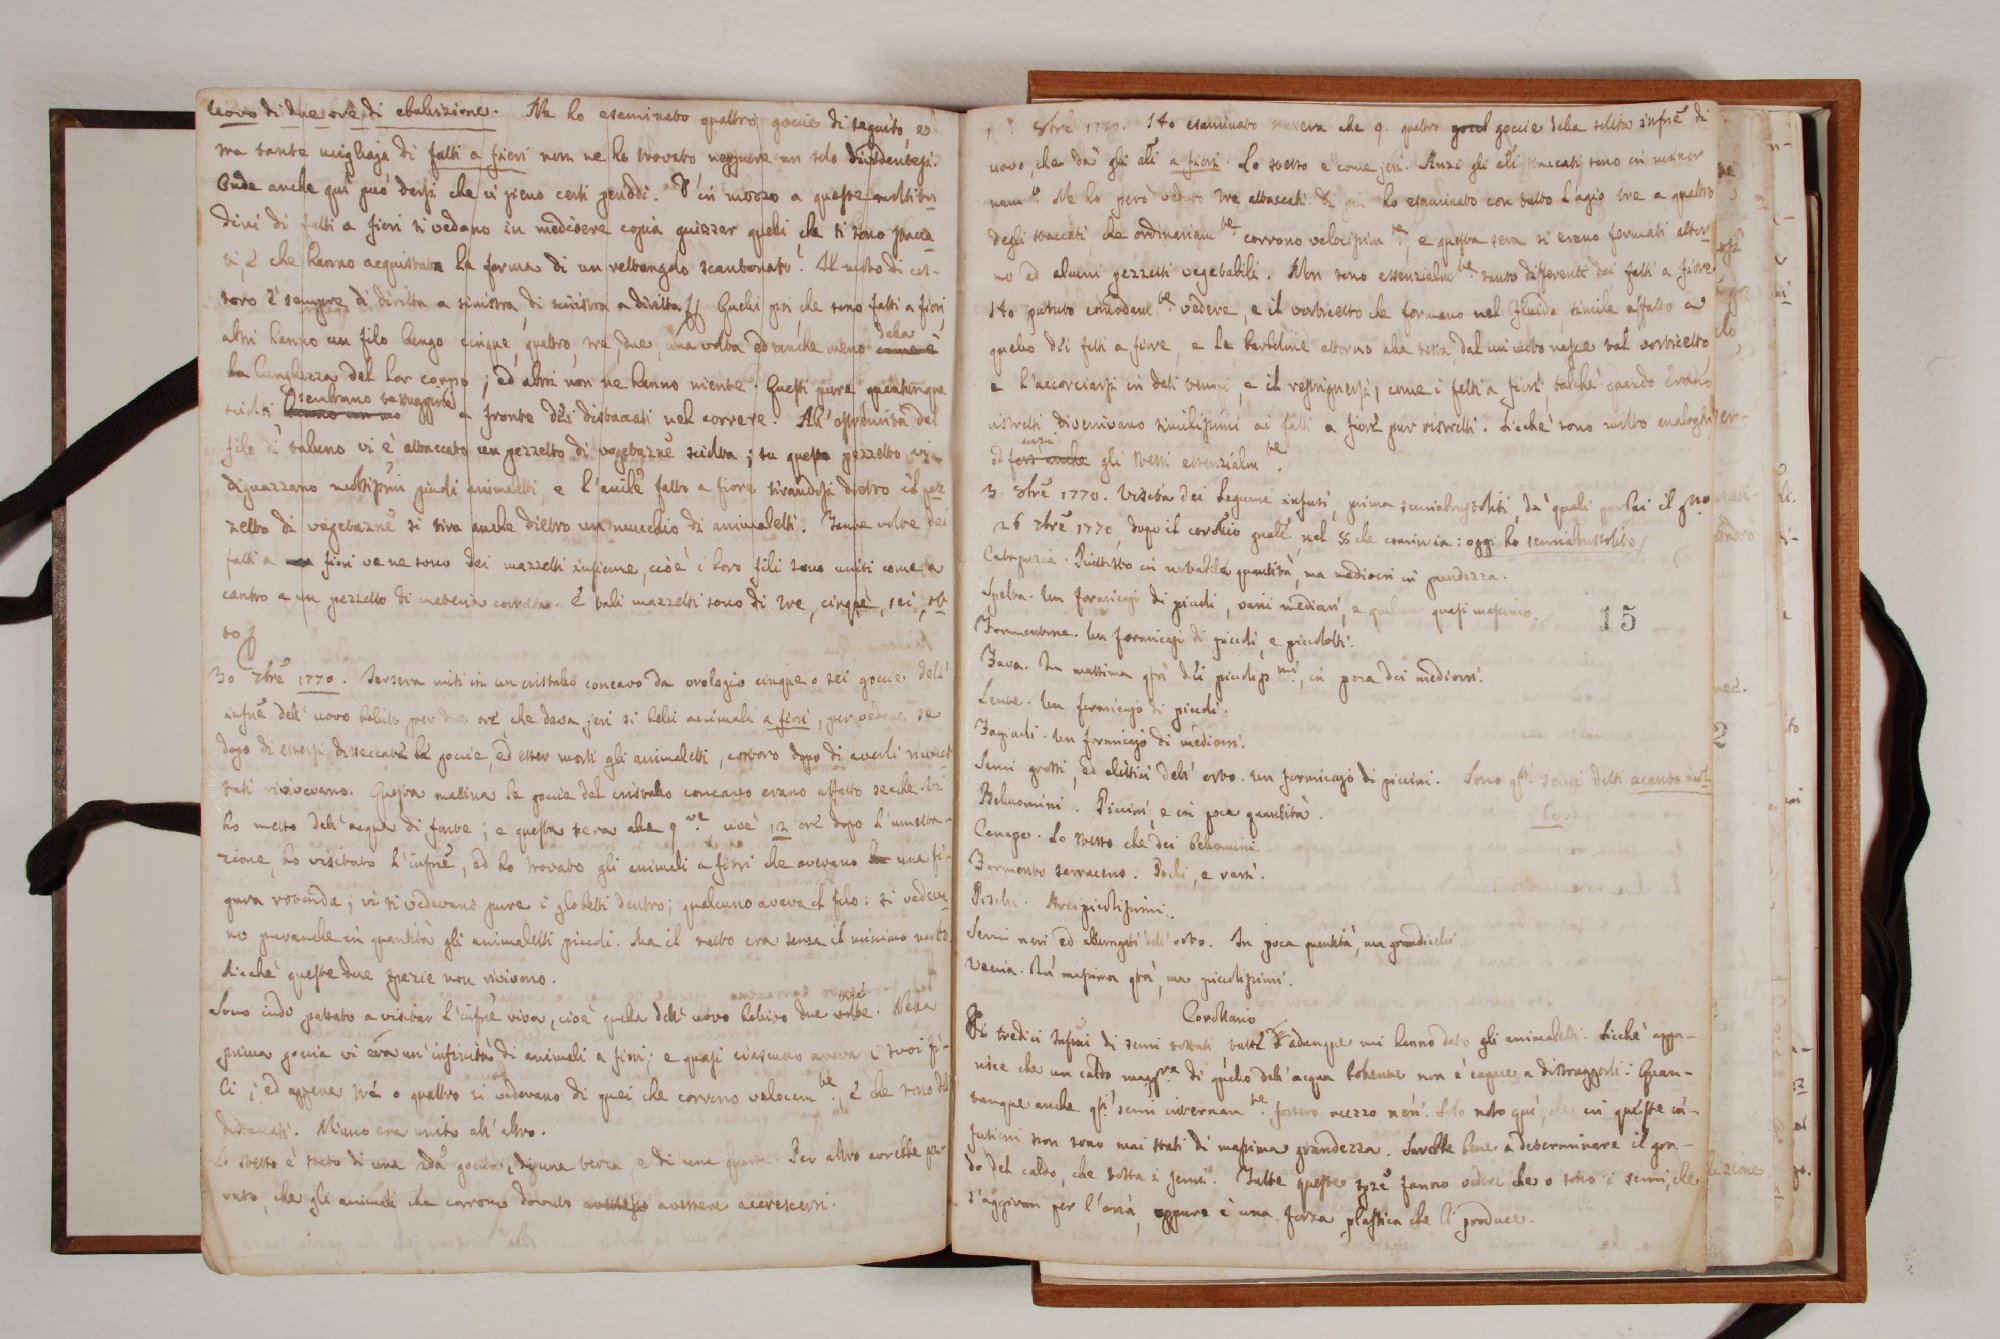 uovo di due ore di ebulizione. Ne ho esaminato quattro gocie di seguito, e
tra tante migliaja di fatti a fiori non ne ho trovato neppure un solo
Onde anche qui può dersi che vi sieno certi periodi. E in mezzo a queste moltitu-
dini di fatti a fiori si vedano in mediocre copia guizzar quelli che si sono stacca-
ti, e che hanno acquistata la forma di un rettangolo scantonato. Il moto di cos-
toro è sempre di diritta a sinistra, di sinistra a diritta. Quelli poi che sono fatti a fiori
altri hanno un filo lungo cinque, quattro, tre, due, una volta ed anche meno della
la lunghezza del lor corpo; ed altri non ne hanno niente. Questi pure quantunque
sciolti sembrano tartarughe a fronte dei distaccati nel correre. All' estremità del
filo di taluno vi è attaccato un pezzetto di vegetaznē sciolta; su questo pezzetto vi
diguazzano moltissimi piccoli animaletti, e l'anile fatto a fiore tirandosi dietro il pez-
zetto di vegetaznē si tira anche dietro un mucchio di animaletti. Tante volte dei
fatti a fiori ve ne sono dei mazzetti insieme, cioè i loro fili sono uniti come a
centro a un pezzetto di materia corrotta. E tali mazzetti sono di tre, cinque, sei, ot-
to
30 7brē 1770. Jersera misi in un cristallo concavo da orologio cinque o sei gocie dell'
infnē dell' uovo bollito per due ore, che dava jeri si belli animali a fiori, per vedere se
dopo di essersi disseccate le gocie, ed esser morti gli animaletti, costoro dopo di averli riumet-
tati rivivevano. Questa mattina le gocie del cristallo concavo erano affatto secche. Vi
ho messo dell' acqua di fonte; e questa sera alle 9 ore, cioè 12 ore dopo l'umetta-
zione, ho visitato l'infnē, ed ho trovato gli animali a fiori che avevano una fi-
gura rotonda; vi si vedevano pure i globetti dentro; qualcuno aveva il filo: si vedeva-
no puranche in quantità gli animaletti piccoli. Ma il tutto era senza il minimo moto.
Sicchè queste due spezie non rivivono.
Sono indi passato a visitar l'infnē viva, cioè quella dell' uovo bollito due ore. Nella
prima gocia vi era un' infinità di animali a fiori; e quasi ciascuno aveva i suoi fi-
li; ed appena tre o quattro si vedevano di quei che corrono velocem.te, e che sono dei
distaccati. Niuno era unito all' altro.
Lo stesso è stato di una 2da gocia, di una terza, e di una quarta. Per altro avrebbe pa-
ruto, che gli animali che corrono dovuto avessero accrescersi.
1° 8brē 1770. Ho esaminato stassera alle 9. quattro gocie della solita infnē di
uovo, che dà gli ali a fiori. Lo stesso è come jeri. Anzi gli ali staccati sono in minor
num.o Ne ho però veduto tre attaccati. Di più ho esaminato con tutto l'agio tre a quattro
degli staccati che ordinariam.te corrono velocissim.te, e questa sera si erano fermati attor-
no ad alcuni pezzetti vegetabili. Non sono essenzialm.te tanto differenti dai fatti a fiore
Ho potuto comodam.te vedere, e il vorticetto che formano nel fluido, simile affatto a
quello dei fatti a fiore, e le barboline attorno alla testa, dal cui moto nasce tal vorticetto
e l'accorciarsi in dati tempi, e il restringersi, come i fatti a fiori, talchè quando erano
ristretti divenivano similissimi ai fatti a fiore pur ristretti. Sicchè sono molto analoghi,
anzi
od fors'anche gli stessi essenzialm.te.
3. 8brē 1770. Visita dei legumi infusi, prima semiabrustoliti, da' quali parlai il g.no
26 7brē 1770, dopo il corollario gnāle nel §§ che comincia: oggi ho semiabrustolito
Catapuzia. Piuttosto in notabile quantità, ma mediocri in grandezza.
Spelta. Un formicajo di piccoli, varii mediocri, e qualcuno quasi massimo.
Formentone. Un formicajo di piccoli, e piccoletti.
Fava. In massima qtà dei picolis.mi, in poca dei mediocri.
Lente. Un formicajo di piccoli.
Fagiuoli. Un formicajo di mediocri.
Semi grossi, ed elittici dell' orto. Un formicajo di piccini. Sono q.ti semi detti acanto mol-
le.
Belluomini. Piccini, e in poca quantità.
Canape. Lo stesso che dei Bellomini.
Formento serraceno. Pochi, e varii.
Piselli. Arcipicolissimi.
Semi neri ed allungati dell' orto. In poca quantità, ma grandicelli.
Veccia. In massima qtà, ma piccolissimi.
Corollario
Di tredici Infusi di semi tostati tutti adunque mi hanno dato gli animaletti. Sicchè appa-
risce che un caldo magg.re di quello dell' acqua bollente non è capace a distruggerli: Quan-
tunque anche q.ti semi internam.te fossero mezzo neri. Solo noto qui, che in queste in-
fusioni non sono mai stati di massima grandezza. Sarebbe bene a determinare il gra-
do del caldo, che tosta i semi. Tutte queste spzē fanno vedere che o sono i semi, che
s'aggiran per l'aria, oppure è una forza plastica che li produce.
15
2